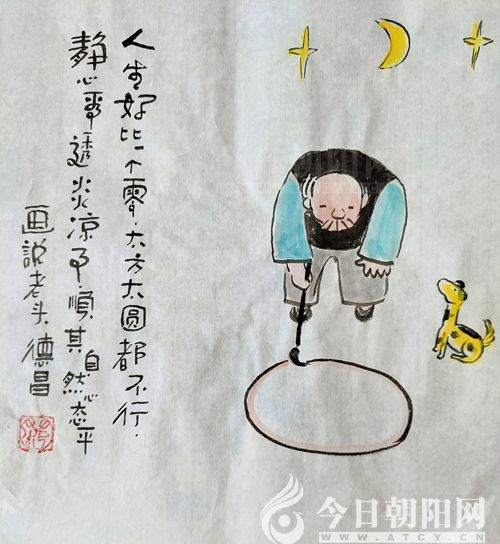 人生好比一个零,太方太圆都不行.
静心看透炎凉事顺其自然心态平
画说老头德昌
今日朝阳网
WWW.ATCY.CN